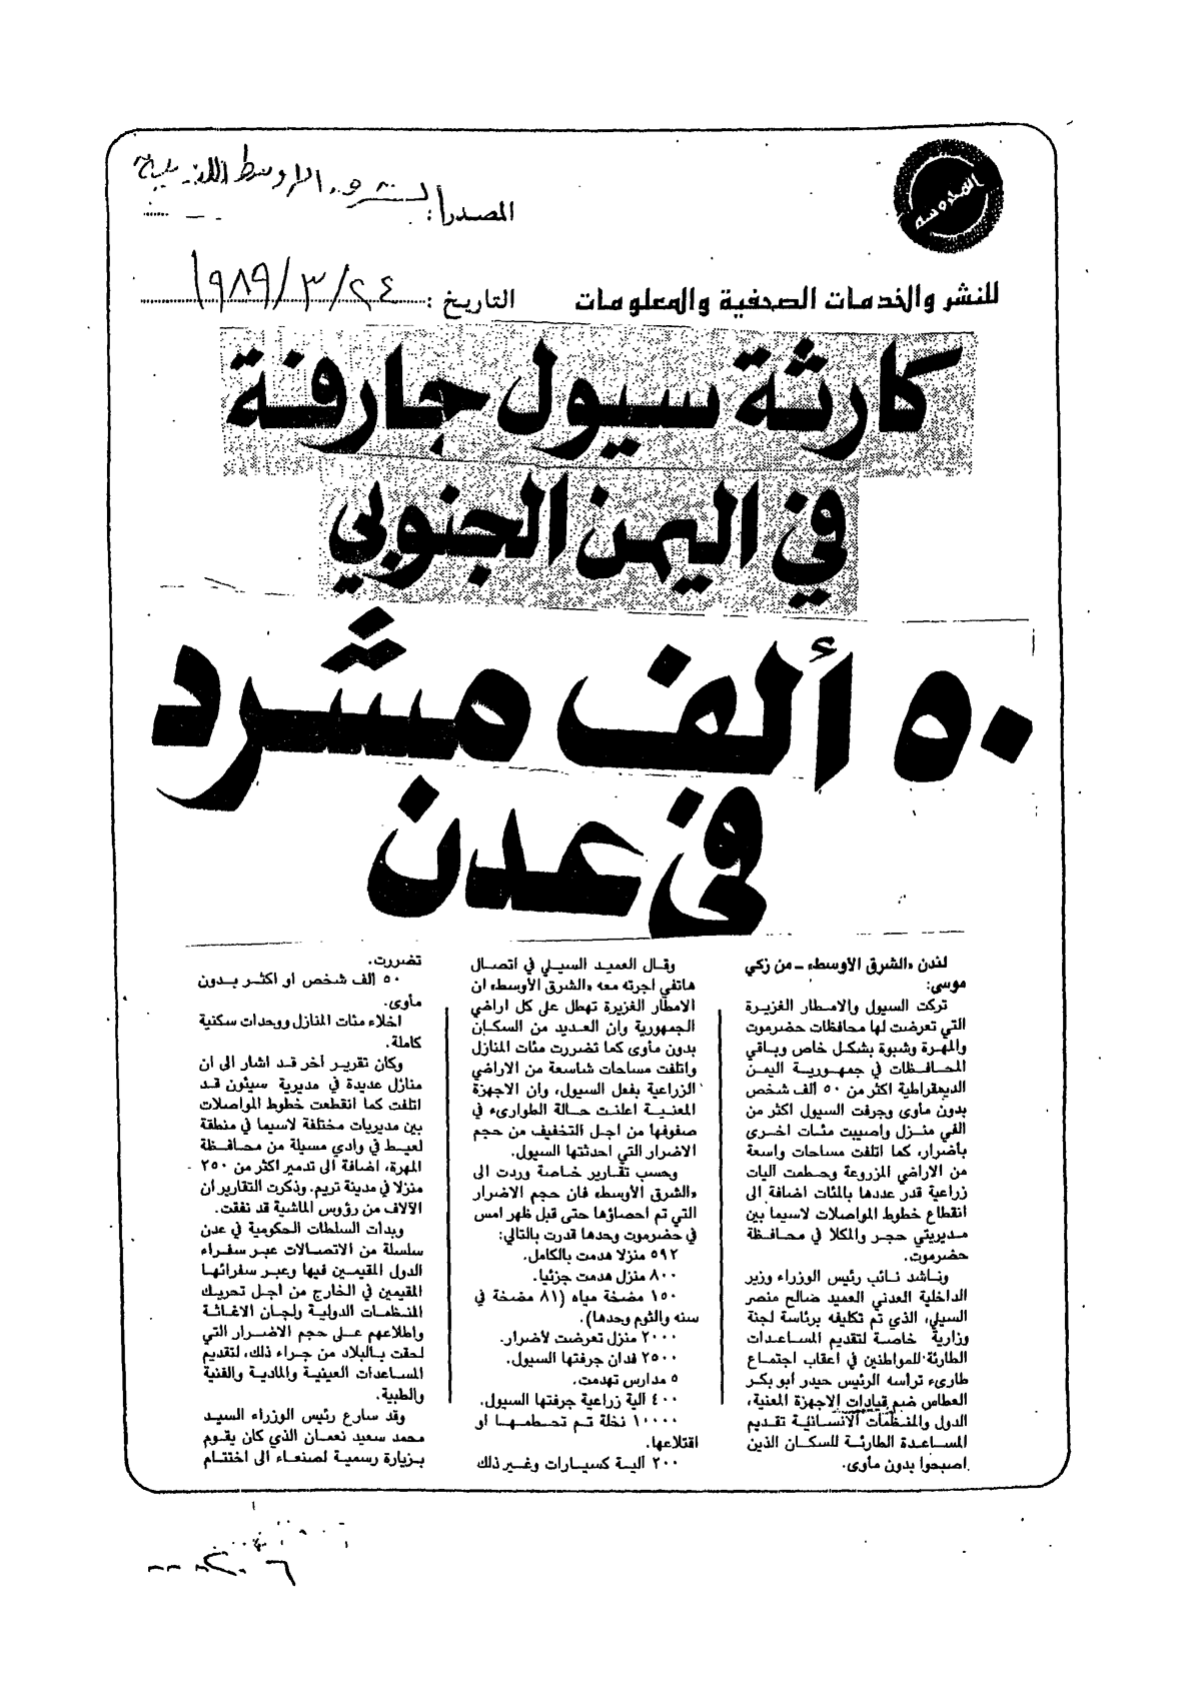 المصدر: الشرق الاوسط اللندنية
للنشر والخدمات الصحفية والمعلومات
التاريخ: ٢٤/٣/١٩٨٩
كارثة سيول جارفة
في اليمن الجنوبي
٥٠ ألف مشرد
في عدن
لندن «الشرق الاوسط» ـ من زكي
موسى:
تركت السيول والامطار الغزيرة
التي تعرضت لها محافظات حضرموت
والمهرة وشبوة بشكل خاص وباقي
المحافظات في جمهورية اليمن
الديمقراطية اكثر من ٥٠ ألف شخص
بدون مأوى وجرفت السيول اكثر من
الفي منزل واصيبت مئات اخرى
بأضرار، كما اتلفت مساحات واسعة
من الاراضي المزروعة وحطمت اليات
زراعية قدر عددها بالمئات اضافة الى
انقطاع خطوط المواصلات لاسيما بين
مديريتي حجر والمكلا في محافظة
حضرموت.
وناشد نائب رئيس الوزراء وزير
الداخلية العدني العميد صالح منصر
السيلي، الذي تم تكليفه برئاسة لجنة
وزارية خاصة لتقديم المساعدات
الطارئة للمواطنين في اعقاب اجتماع
طارىء ترأسه الرئيس حيدر ابو بكر
العطاس ضم قيادات الاجهزة المعنية،
الدول والمنظمات الانسانية تقديم
المساعدة الطارئة للسكان الذين
اصبحوا بدون مأوى.
وقال العميد السيلي في اتصال
هاتفي اجرته معه «الشرق الأوسط» ان
الامطار الغزيرة تهطل على كل اراضي
الجمهورية وان العديد من السكان
بدون مأوى كما تضررت مئات المنازل
واتلفت مساحات شاسعة من الاراضي
الزراعية بفعل السيول، وان الاجهزة
المعنية اعلنت حالة الطوارىء في
صفوفها من اجل التخفيف من حجم
الاضرار التي احدثتها السيول.
وحسب تقارير خاصة وردت الى
«الشرق الأوسط» فان حجم الاضرار
التي تم احصاؤها حتى قبل ظهر امس
في حضرموت وحدها قدرت بالتالي:
٥٩٢ منزلا هدمت بالكامل.
٨٠٠ منزل هدمت جزئيا.
١٥٠ مضخة مياه (٨١ مضخة في
سنه والثوم وحدها).
٢٠٠٠ منزل تعرضت لأضرار.
٢٥٠٠ فدان جرفتها السيول.
٥ مدارس تهدمت.
٤٠٠ آلية زراعية جرفتها السيول.
١٠٠٠٠ نخلة تم تحطمها او
اقتلاعها.
٢٠٠ آلية كسيارات وغير ذلك
تضررت.
٥٠ الف شخص او اكثر بدون
مأوى.
اخلاء مئات المنازل ووحدات سكنية
كاملة.
وكان تقرير آخر قد اشار الى ان
منازل عديدة في مديرية سيئون قد
اتلفت كما انقطعت خطوط المواصلات
بين مديريات مختلفة لاسيما في منطقة
لعيط في وادي مسيلة من محافظة
المهرة، اضافة الى تدمير اكثر من ٢٥٠
منزلا في مدينة تريم. وذكرت التقارير أن
الآلاف من رؤوس الماشية قد نفقت.
وبدأت السلطات الحكومية في عدن
سلسلة من الاتصالات عبر سفراء
الدول المقيمين فيها وعبر سفرائها
المقيمين في الخارج من أجل تحريك
المنظمات الدولية ولجان الاغاثة
واطلاعهم على حجم الاضرار التي
لحقت بالبلاد من جراء ذلك، لتقديم
المساعدات العينية والمادية والفنية
والطبية.
وقد سارع رئيس الوزراء السيد
محمد سعيد نعمان الذي كان يقوم
بزيارة رسمية لصنعاء الى اختتام